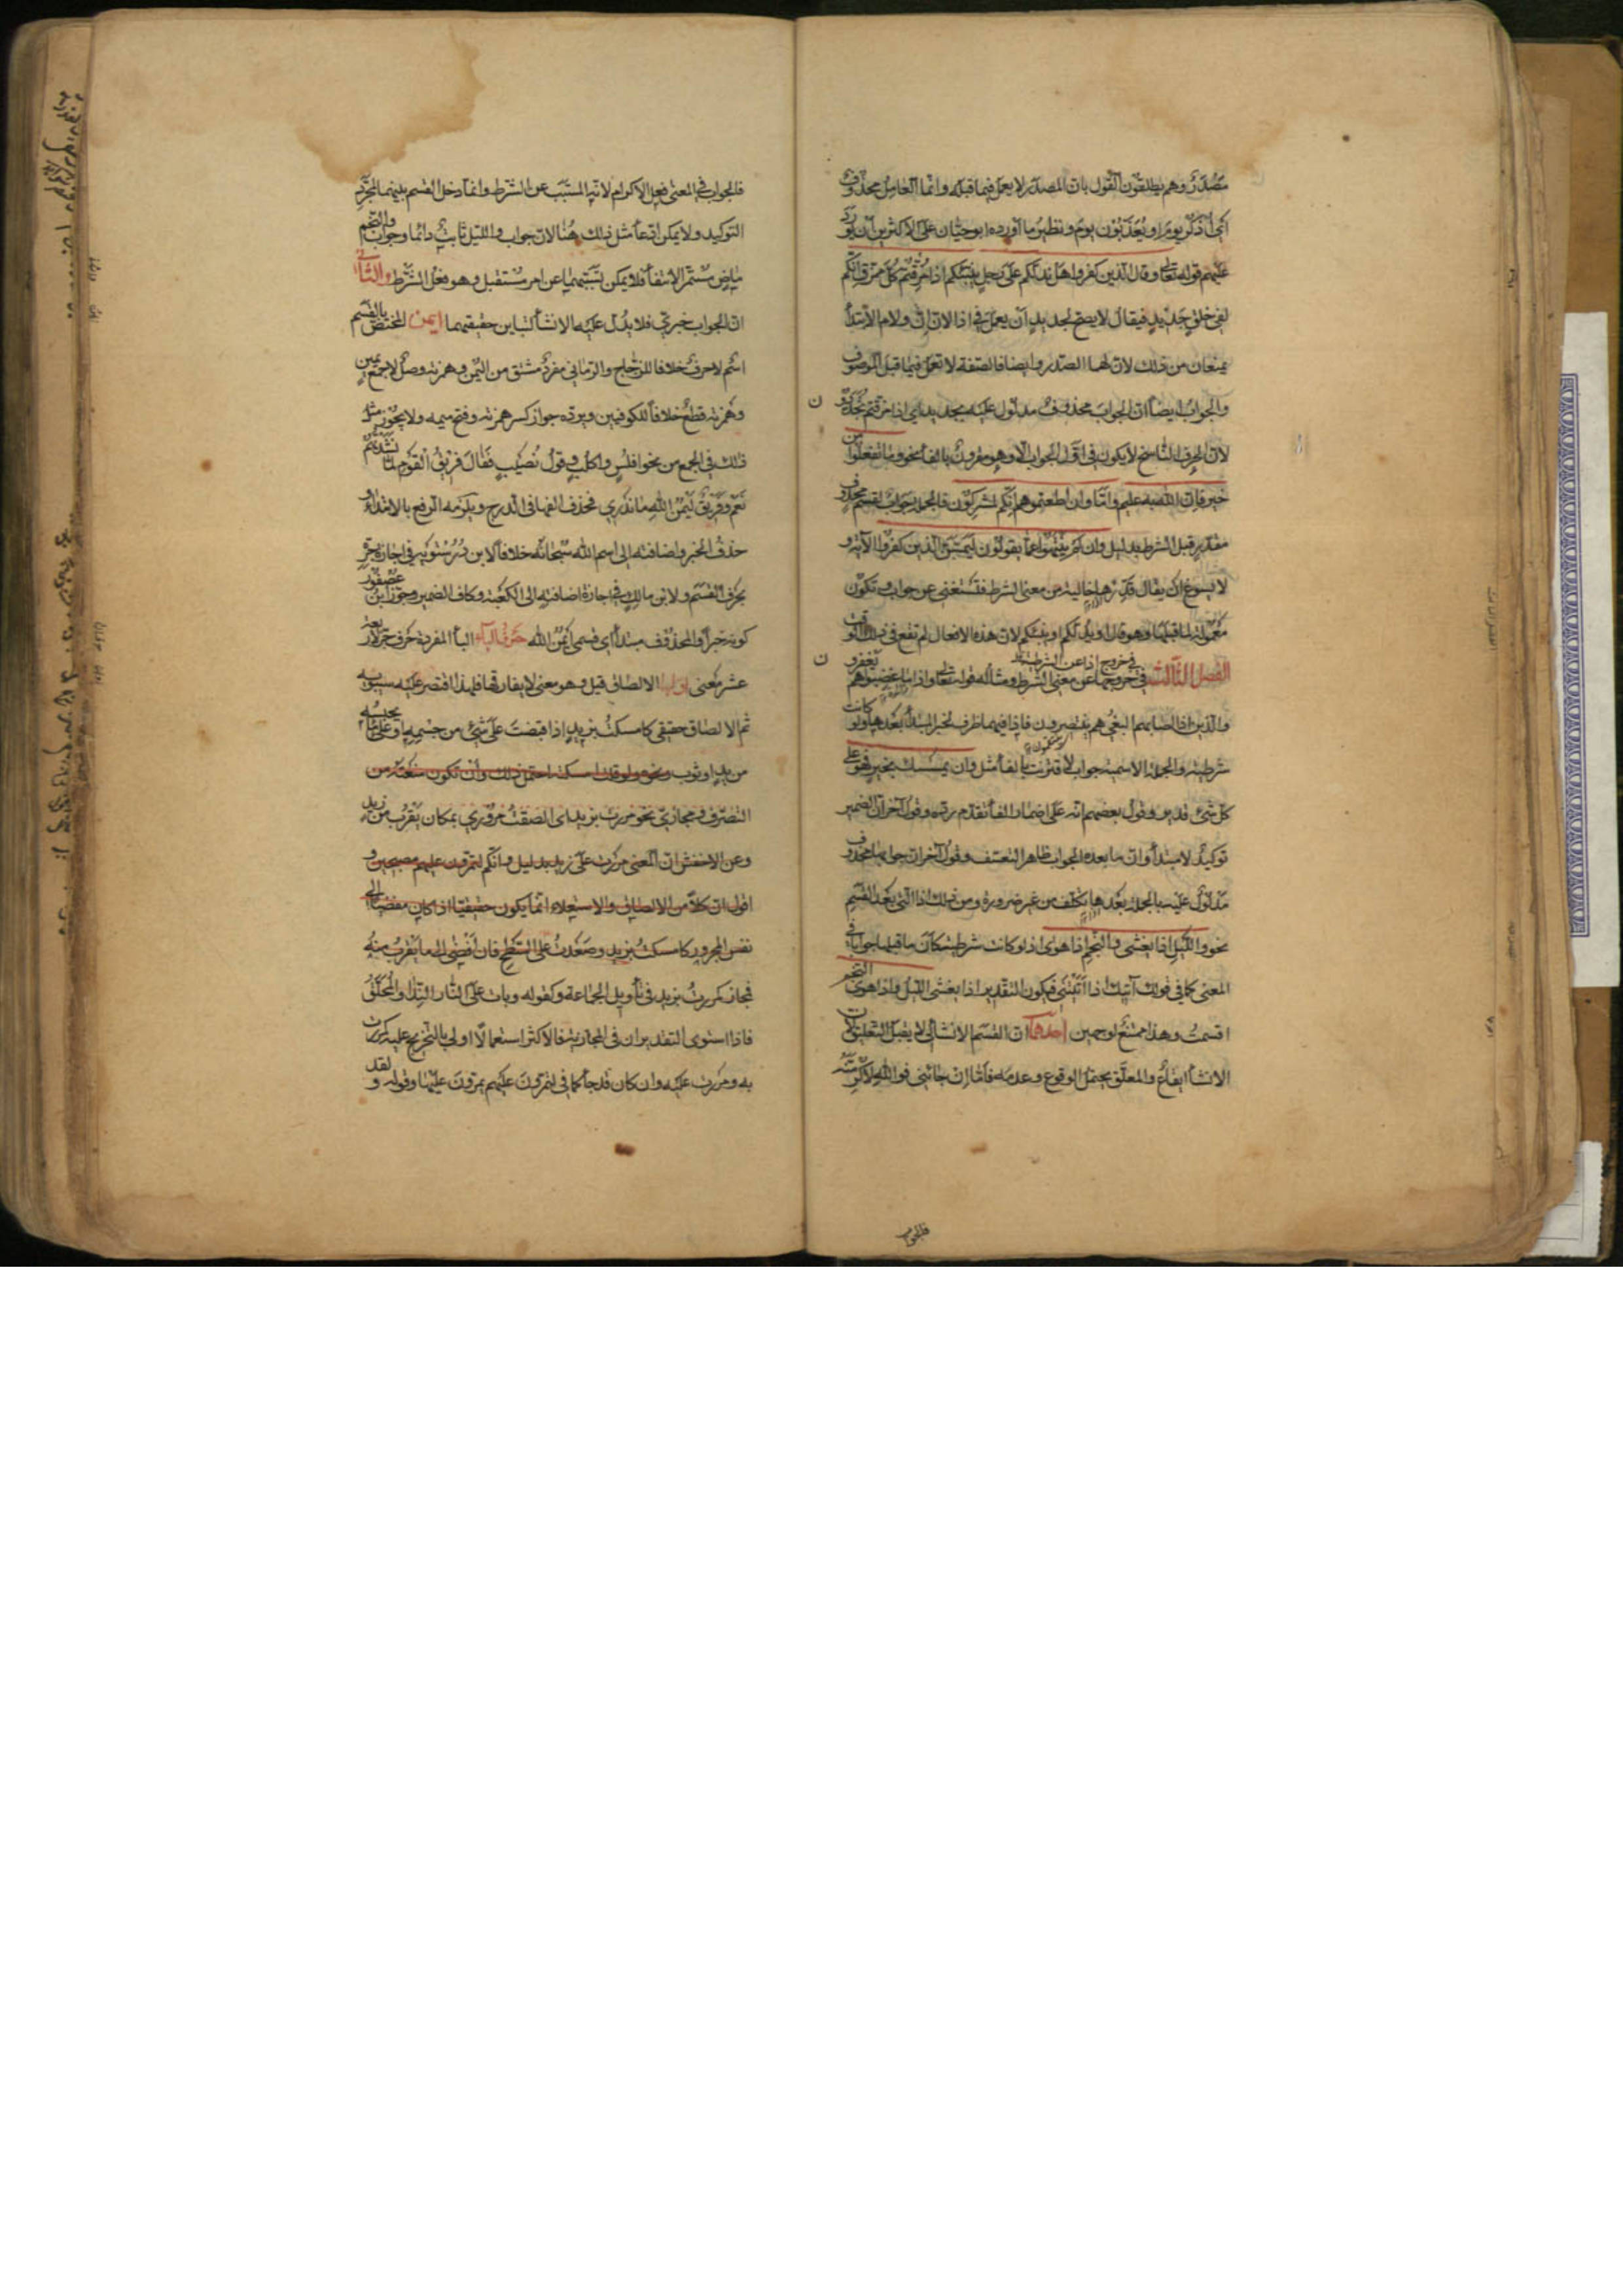 مصدر وهم يطلقون القول بان المصدر لا يعمل فيما قبله وانما العامل محذوف
اى اذكر يوم او يعذبون يوم ونظير ما اورده ابو حيان على الاكثرين ان يورد
عليهم قوله تعالى وقال الذين كفروا هل ندلكم على رجل ينبئكم اذا مزقتم كل ممزق انكم
لفى خلق جديد فيقال لا يصح لجديد ان يعمل فى اذا لان ان ولام الابتداء
يمنعان من ذلك لان لهما الصدر وايضا فالصفة لا تعمل فيما قبل الموصوف
والجواب ايضا ان الجواب محذوف مدلول عليه بجديد اى اذا مزقتم تجددون
لان الحرف الناسخ لا يكون فى اول الجواب الا وهو مقرون بالفاء نحو وما تفعلوا من
خير فان الله به عليم واما وان اطعتموهم انكم لمشركون فالجملة جواب لقسم محذوف
مقدر قبل الشرط بدليل وان لم ينتهوا عما يقولون ليمسن الذين كفروا الآية و
لا يسوغ ان يقال قدرها خالية من معنى الشرط فتستغنى عن جواب وتكون
معمولة لما قبلها وهو قال او ندلكم او ينبئكم لان هذه الافعال لم تقع فى ذلك الوقت
الفصل الثالث فى خروج اذا عن الشرطية
فى خروجها عن معنى الشرط ومثاله قوله تعالى واذا ما غضبوا هم يغفرون
والذين اذا اصابهم البغى هم ينتصرون فاذا فيهما ظرف لخبر المبتدا بعدها ولو كانت
شرطية والجملة الاسمية جواب لاقترنت بالفاء مثل وان يمسسك بخير فهو على
كل شئ قدير وقول بعضهم انه على اضمار الفاء تقدم رده وقول آخر ان الضمير
توكيد لا مبتدا وان ما بعده الجواب ظاهر التعسف وقول آخر ان جوابها محذوف
مدلول عليه بالجملة بعدها تكلف من غير ضرورة ومن ذلك اذا التى بعد القسم
نحو والليل اذا يغشى والنجم اذا هوى اذ لو كانت شرطية كان ما قبلها جوابا فى
المعنى كما فى قولك آتيك اذا اتيتنى فيكون التقدير اذا يغشى الليل واذا هوى النجم
اقسمت وهذا ممتنع لوجهين احدهما ان القسم الانشائى لا يقبل التعليق لان
الانشاء ايقاع والمعلق يحتمل الوقوع وعدمه فاما ان جاءنى فوالله لاكرمنه
فالجواب
فالجواب فى المعنى فعل الاكرام لانه المسبب عن الشرط وانما دخل القسم بينهما لمجرد
التوكيد ولا يمكن ادعاء مثل ذلك هنا لان جواب والليل ثابت دائما وجواب والنجم
ماض مستمر الانتفاء فلا يمكن تسببهما عن امر مستقبل وهو فعل الشرط والثانى
ان الجواب خبرى فلا يدل عليه الانشاء لتباين حقيقتهما ايمن المختص بالقسم
اسم لا حرف خلافا للزجاج والرمانى مفرد مشتق من اليمن وهمزته وصل لا جمع يمين
وهمزته قطع خلافا للكوفيين ويرده جواز كسر همزته وفتح ميمه ولا يجوز مثل
ذلك فى الجمع من نحو افلس واكلب وقول نصيب فقال فريق القوم لما نشدتهم
نعم وفريق ليمن الله ما ندرى فحذف الفها فى الدرج ويلزمه الرفع بالابتداء و
حذف الخبر واضافته الى اسم الله سبحانه خلافا لابن درستويه فى اجازة جره
بحرف القسم ولابن مالك فى اجازة اضافته الى الكعبة وكاف الضمير وجوز ابن عصفور
كونه خبرا والمحذوف مبتدا اى قسمى ايمن الله حرف الباء الباء المفردة حرف جر لاربعة
عشر معنى اولها الالصاق قيل وهو معنى لا يفارقها فلهذا اقتصر عليه سيبويه
ثم الالصاق حقيقى كامسكت بزيد اذا قبضت على شئ من جسمه او على ما يحبسه
من يد او ثوب ونحوه ولو قلت امسكته احتمل ذلك وان تكون منعته من
التصرف ومجازى نحو مررت بزيد اى الصقت مرورى بمكان يقرب من زيد
وعن الاخفش ان المعنى مررت على زيد بدليل وانكم لتمرون عليهم مصبحين و
اقول ان كلا من الالصاق والاستعلاء انما يكون حقيقيا اذا كان مفضيا الى
نفس المجرور كامسكت بزيد وصعدت على السطح فان افضى الى ما يقرب منه
فمجاز كمررت بزيد فى تأويل الجماعة وكقوله وبات على النار الندا والمحلق
فاذا استوى التقديران فى المجازية فالاكثر استعمالا اولى بالتخريج عليه كمررت
به ومررت عليه وان كان قد جاء كما فى لتمرون عليهم يمرون عليها وقوله ولقد